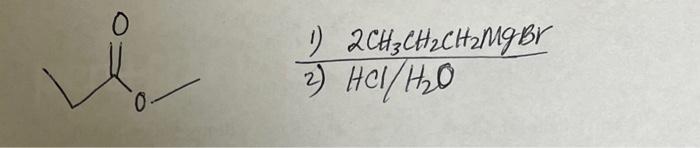 O
O
1) 2CH₃CH₂CH₂MgBr
2) HCl/H₂O